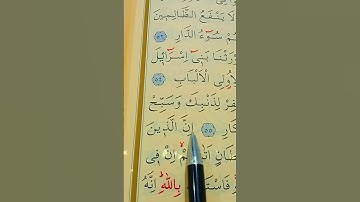 لَا يَنْفَعُ الظَّالِمِينَ
سُوٓءُ الدَّارِ ٥٢
وْرَثْنَا بَنٓي اِسْرَآئِلَ
لِاُولِي الْاَلْبَابِ ٥٤
فِرْ لِذَنْبِكَ وَسَبِّحْ
كَارِ ٥٥ اِنَّ الَّذِينَ
طَانٍ اَتٰيهُمْ اِنْ فِي
فَاسْتَعِذْ بِاللّٰهِ اِنَّهُ